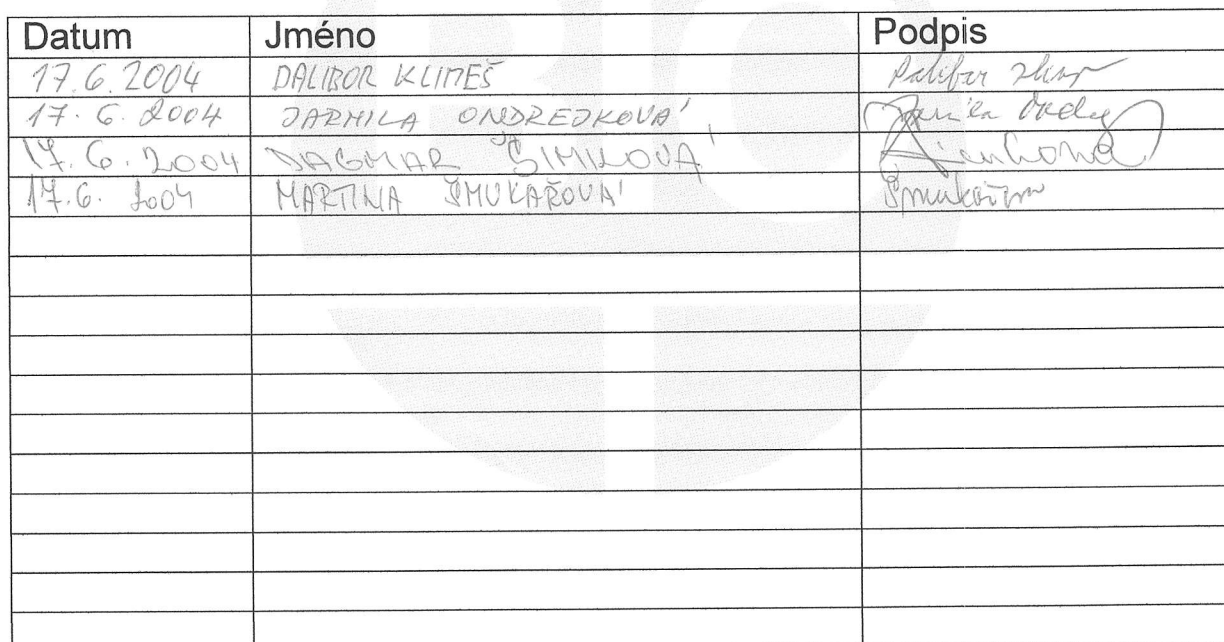 Datum Jméno Podpis
17.6.2004 DALIBOR KLIMEŠ Dalibor
17.6.2004 JARMILA ONDREJKOVÁ Jarmila
17.6.2004 DAGMAR ŠIMILOVÁ
17.6.2004 MARTINA ŠMUKAŘOVÁ